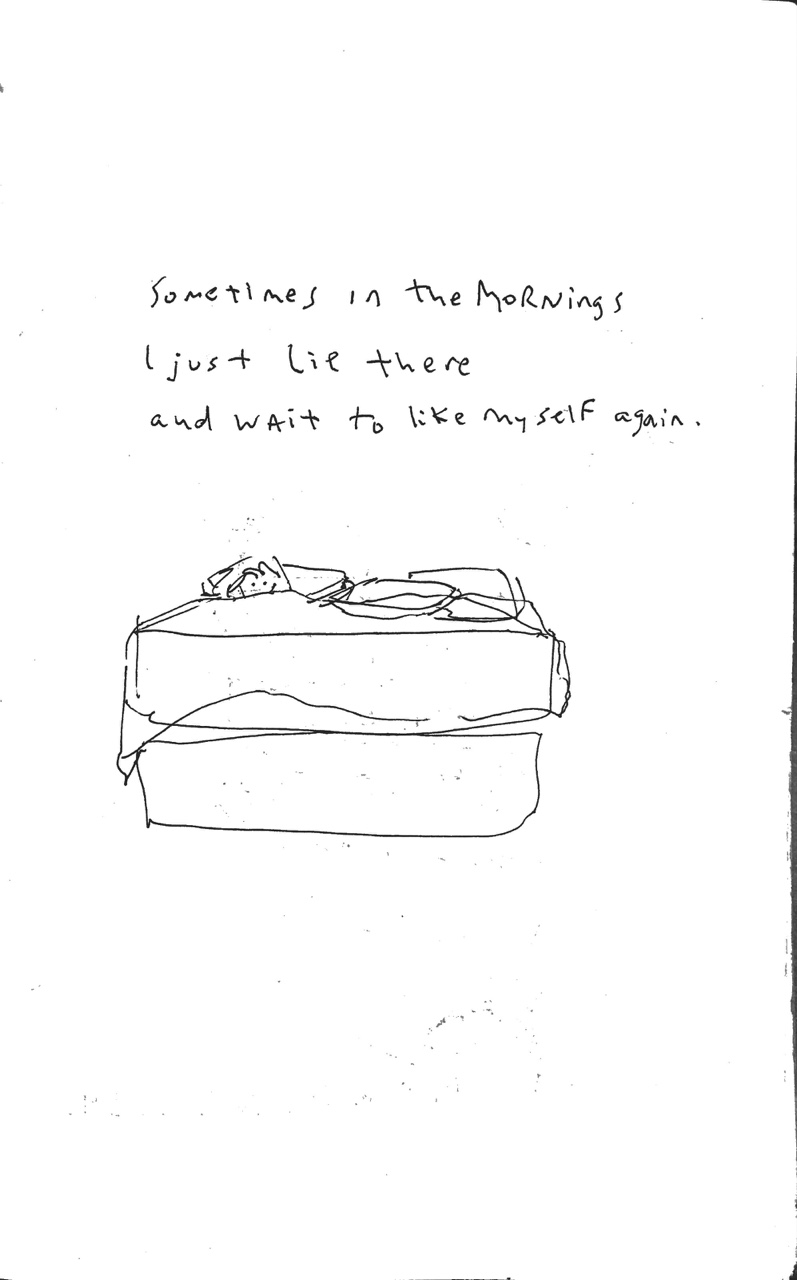 Sometimes in the MoRNings
I just lie there
and wait to like myself again.